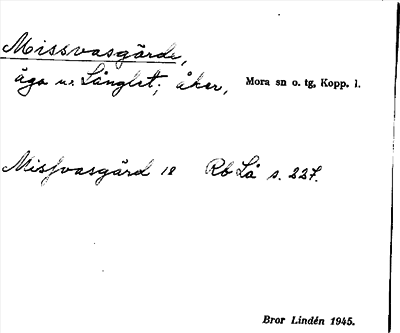 Missvasgärde,
äga u. Långlet; åker, Mora sn o. tg, Kopp. l.
Missvasgärd 18 Rb Lå s. 227.
Bror Lindén 1945.